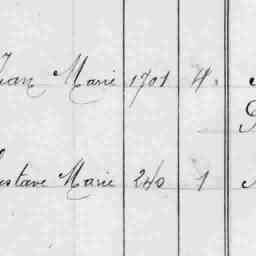 Jean Marie 1701 4.
Gustave Marie 240 1